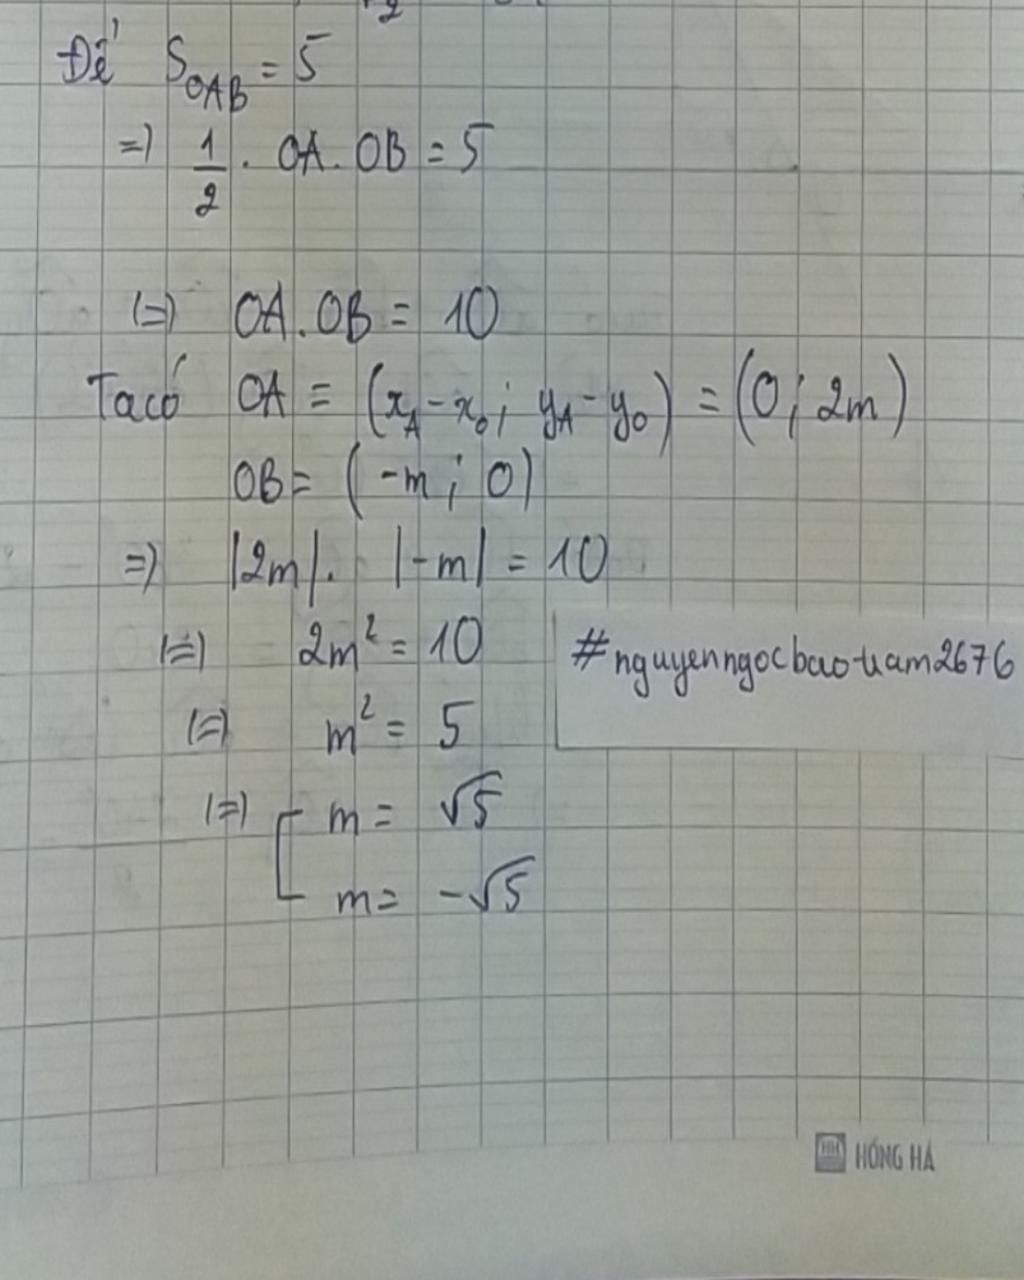 Để S_OAB = 5
=) 1/2 . OA. OB = 5
(=) OA. OB = 10
Ta có OA = (x_A - x_O; y_A - y_O) = (0; 2m)
OB = (-m; 0)
=) |2m|. |-m| = 10
(=) 2m² = 10
#nguyenngocbaotram2676
(=) m² = 5
(=) [ m = √5
m = -√5
HỒNG HÀ